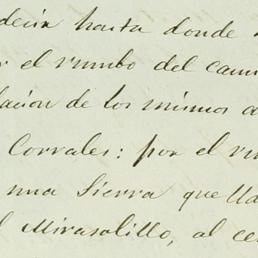 decir hasta donde
el rumbo del cam
lacion de los mismos a
Corrales: por el ru
una Sierra que lla
l Mirasolillo, al ce